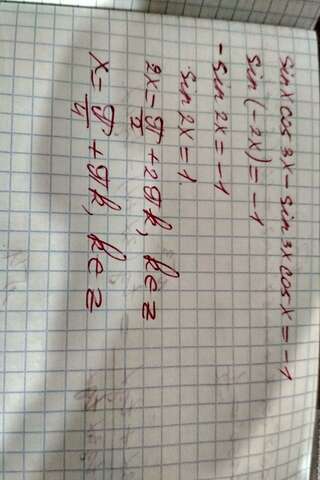 sin x cos 3x - sin 3x cos x = -1
sin (-2x) = -1
- sin 2x = -1
sin 2x = 1
2x = π/2 + 2πk, k ∈ z
x = π/4 + πk, k ∈ z